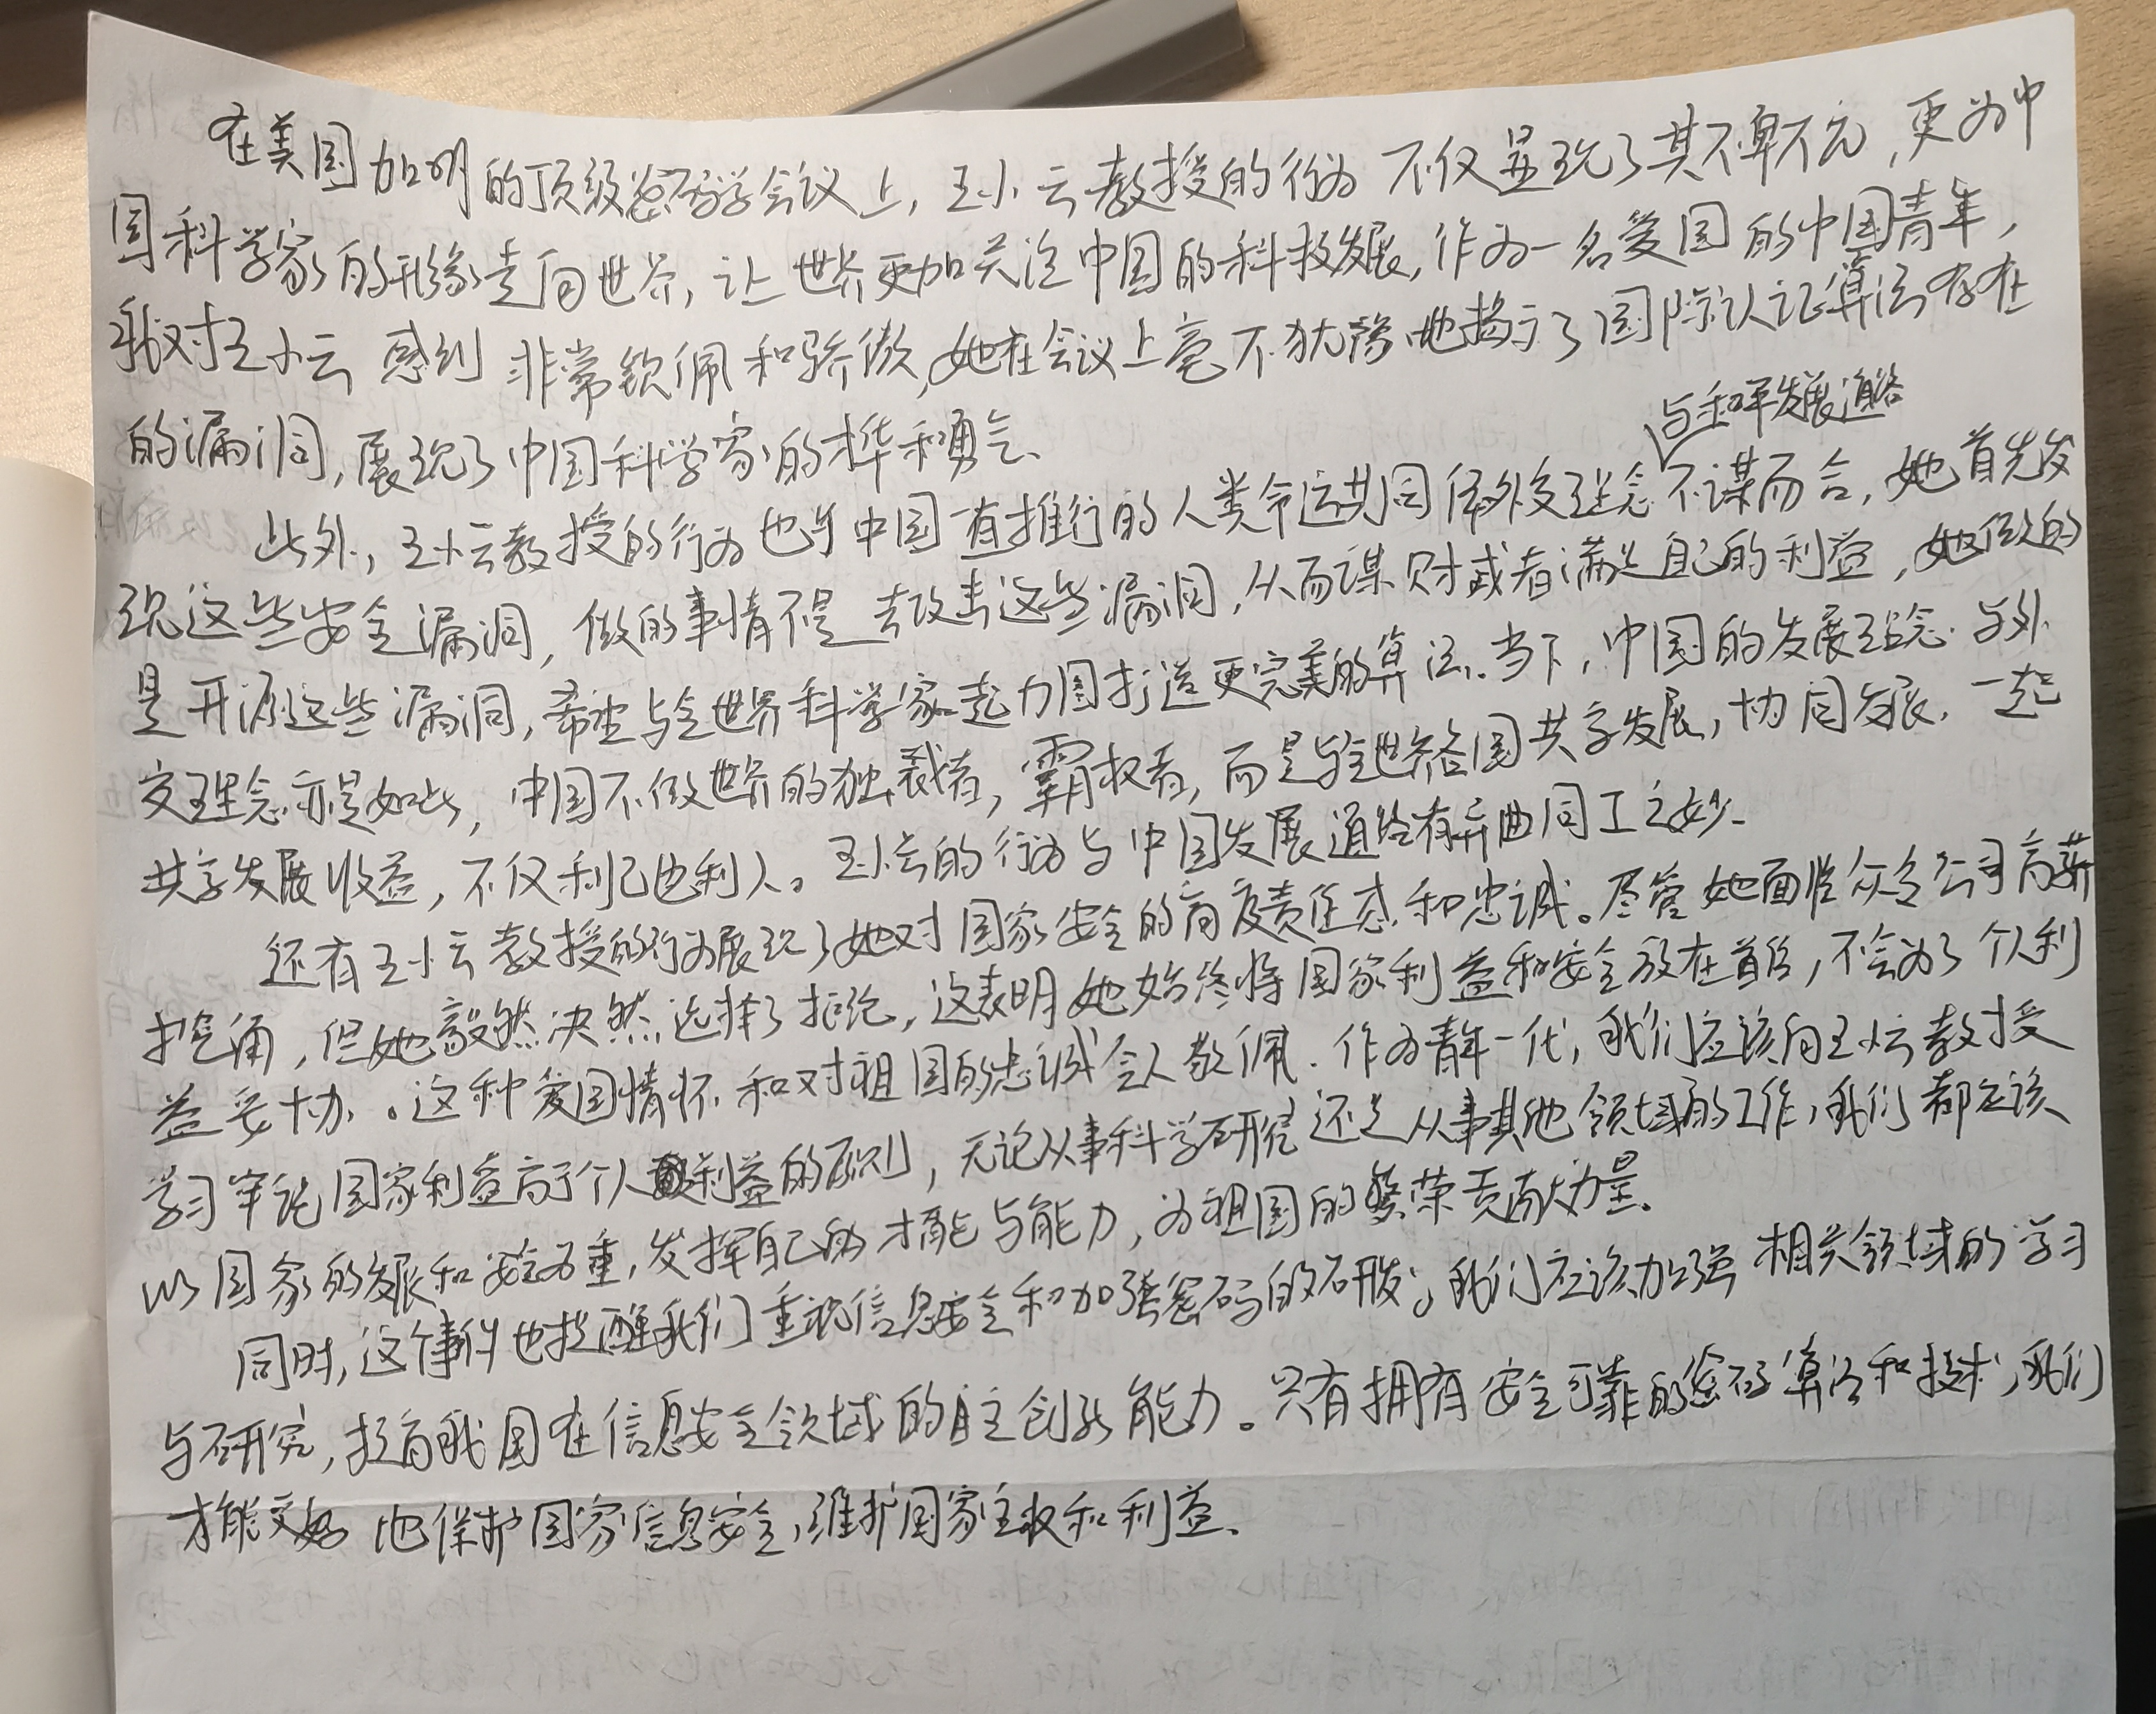 在美国加州的顶级密码学会议上，王小云教授的行为不仅显现了其不卑不亢，更为中
国科学家的形象走向世界，让世界更加关注中国的科技发展，作为一名爱国的中国青年，
我对王小云感到非常钦佩和骄傲，她在会议上毫不犹豫地揭示了国际认证算法存在
的漏洞，展现了中国科学家的才华和勇气、
与和平发展道路
此外，王小云教授的行为也与中国一直推行的人类命运共同体外交理念不谋而合，她首先发
现这些安全漏洞，做的事情不是去攻击这些漏洞，从而谋财或者满足自己的利益，她做的
是开源这些漏洞，希望与全世界科学家一起力图打造更完美的算法、当下，中国的发展理念与外
交理念亦是如此，中国不做世界的独裁者，霸权者，而是与全世界各国共享发展，协同发展，一起
共享发展收益，不仅利己也利人。王小云的行为与中国发展道路有异曲同工之妙、
还有王小云教授的行为展现了她对国家安全的高度责任感和忠诚。尽管她面临众多公司高薪
挖角，但她毅然决然选择了拒绝，这表明她始终将国家利益和安全放在首位，不会为了个人利
益妥协。这种爱国情怀和对祖国的忠诚令人敬佩．作为青年一代，我们应该向王小云教授
学习牢记国家利益高于个人利益的原则，无论从事科学研究还是从事其他领域的工作，我们都应该
以国家的发展和安全为重，发挥自己的才能与能力，为祖国的繁荣贡献力量、
同时，这个事件也提醒我们重视信息安全和加强密码的研发，我们应该加强相关领域的学习
与研究，提高我国在信息安全领域的自主创新能力。只有拥有安全可靠的密码算法和技术，我们
才能更好地保护国家信息安全，维护国家主权和利益、